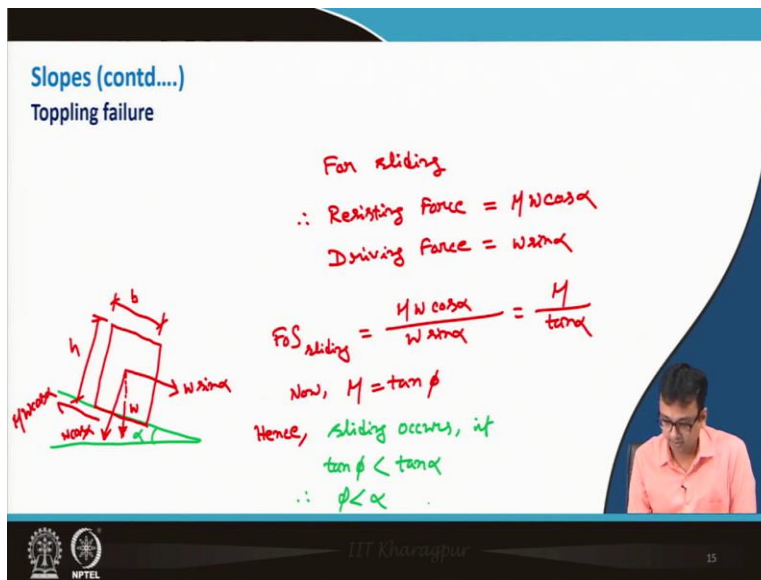 Slopes (contd....)
Toppling failure
For sliding
∴ Resisting Force = μWcosα
Driving Force = Wsinα
FoS sliding = μWcosα / Wsinα = μ / tanα
Now, μ = tan φ
Hence, sliding occurs, if
tan φ < tanα
∴ φ < α
b
h
Wsinα
μWcosα
W
Wcosα
α
IIT Kharagpur
NPTEL
15